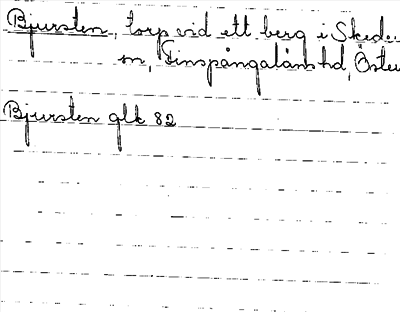 Bjursten, torp vid ett berg i Sked..
sn, Finspångaläns hd, Öster
Bjursten glk 82